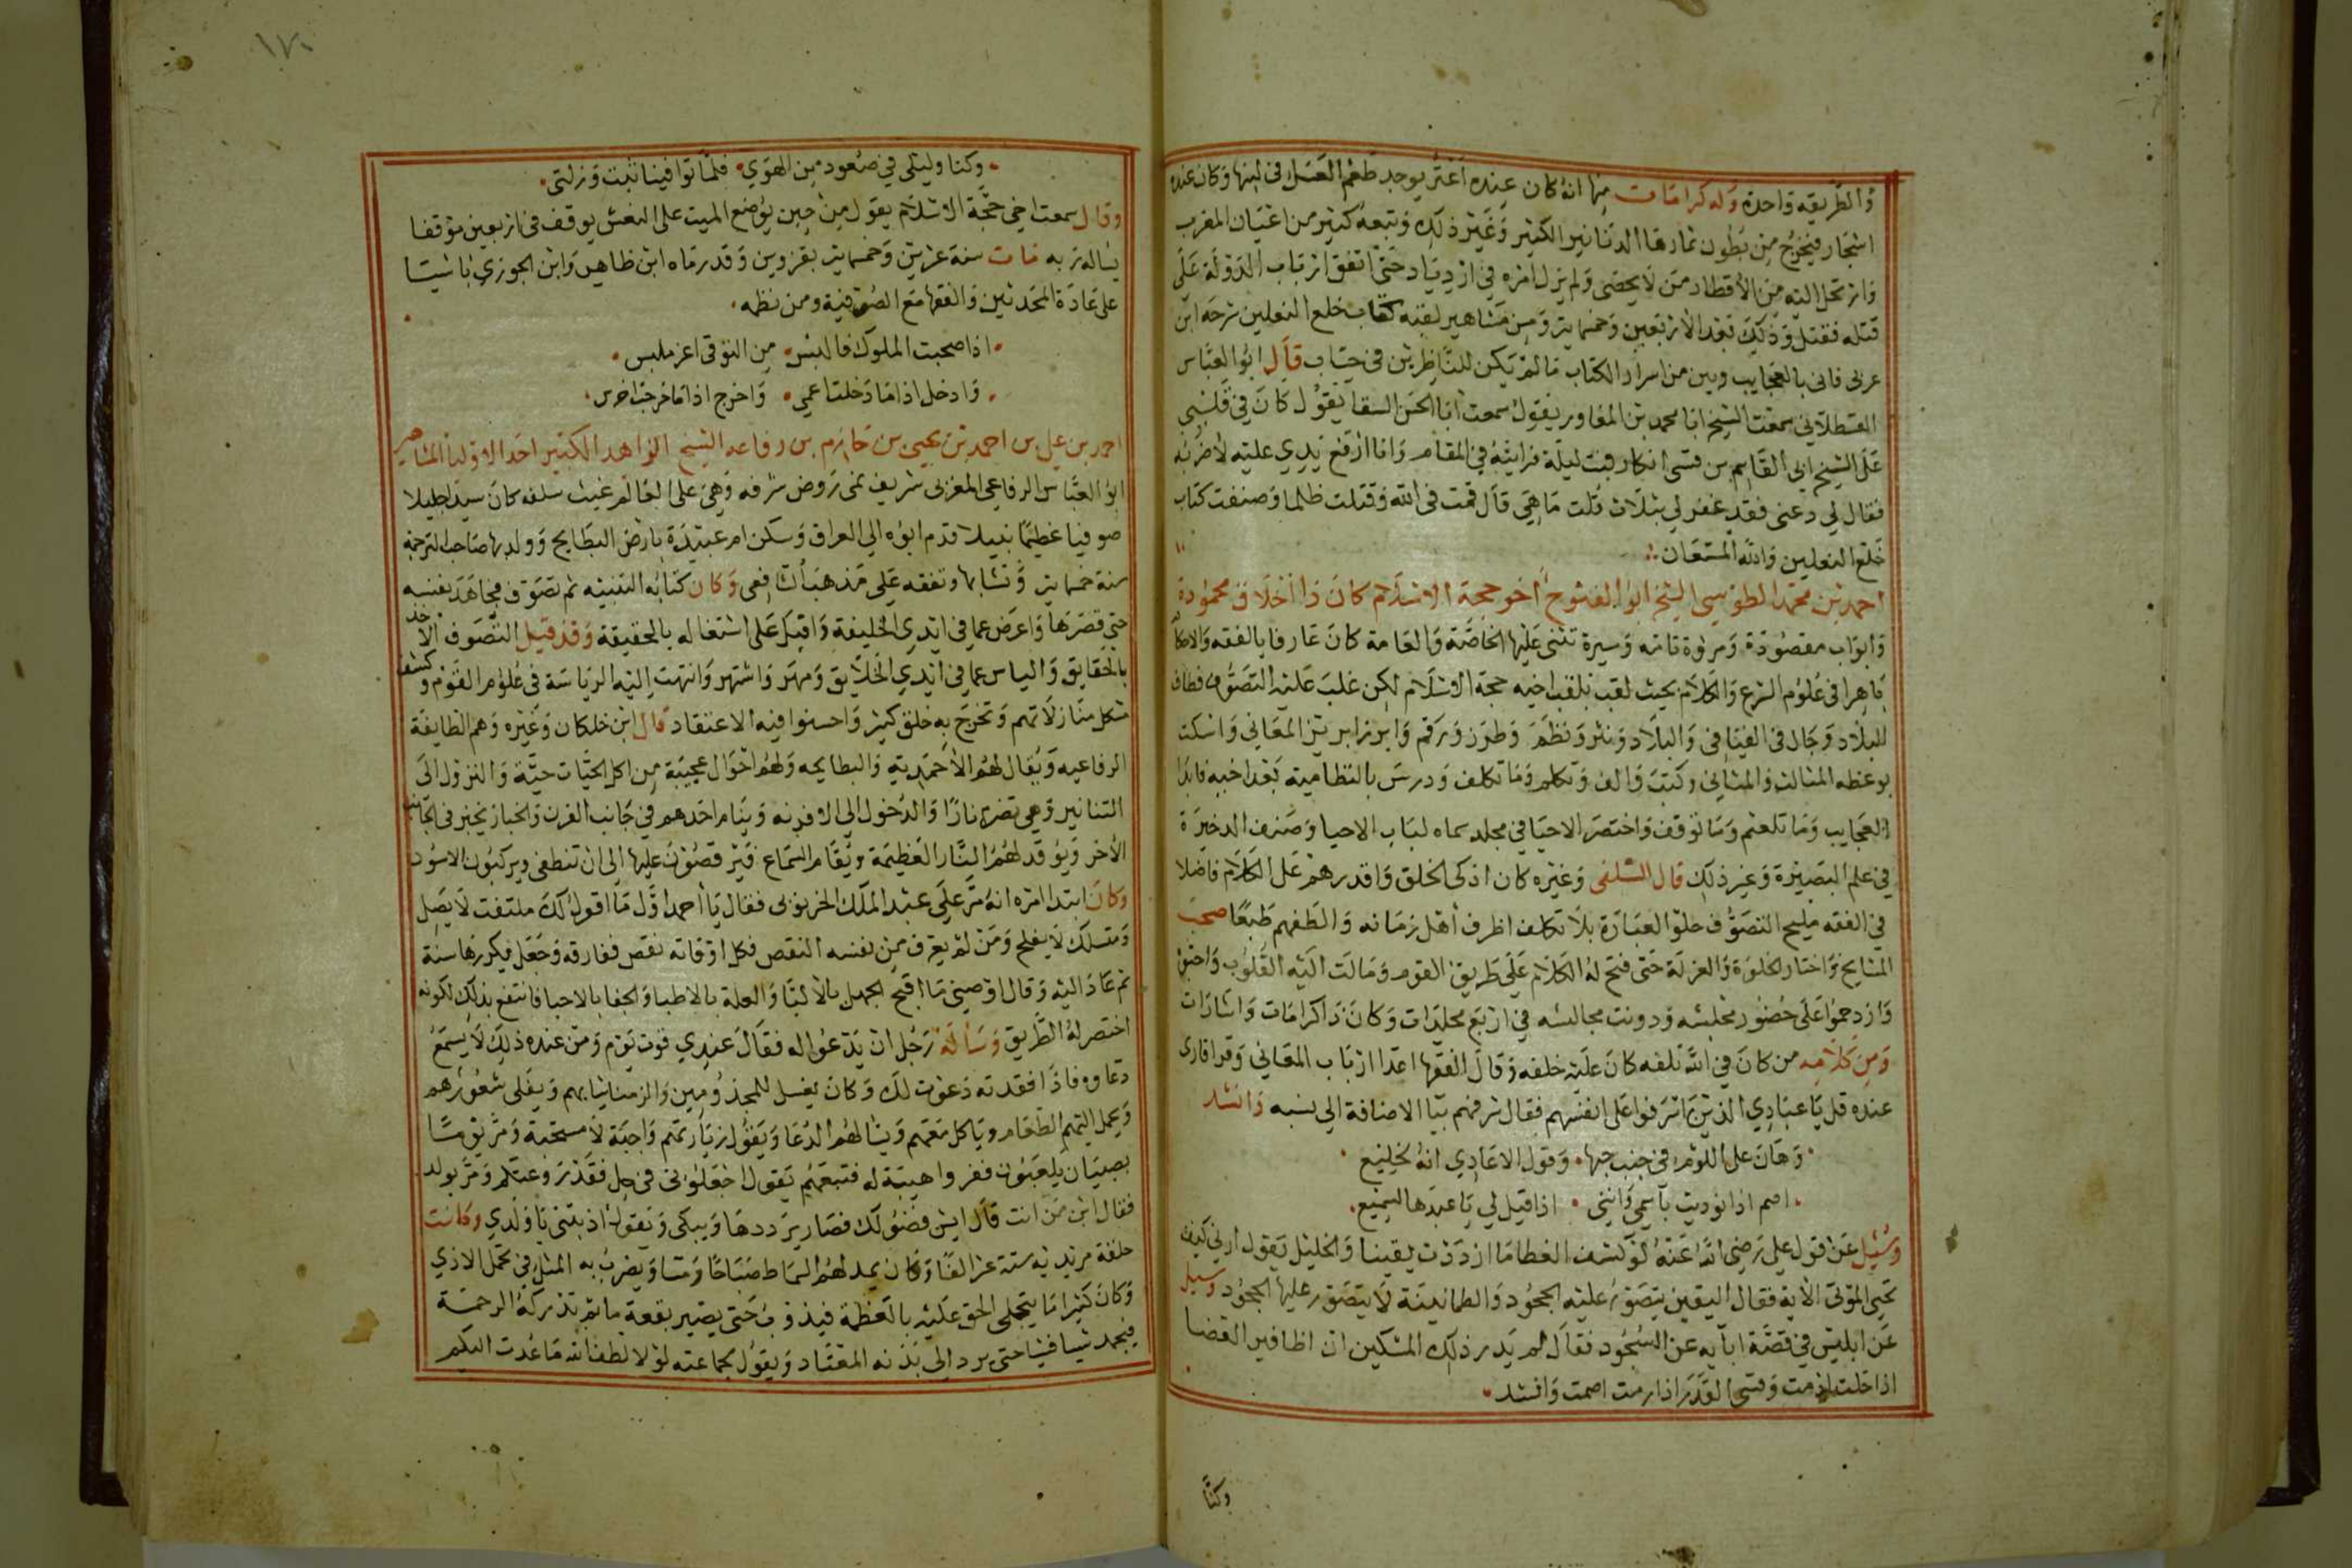 والطريقه واحدة وله كرامات منها انه كان عنده اعنز يوجد طعم العسل في لبنها وكان عنده
اشجار فيخرج من بطون ثمارها الدنانير الكثير وغير ذلك وتبعه كثير من اعيان المغرب
وارتحل اليه من الاقطار من لا يحصى ولم يزل امره في ازدياد حتى اتفق ارباب الدولة على
قتله فقتل وذلك بعد الاربعين وخمسماية ومن مشاهير كتاب خلع النعلين شرحه ابن
عربى فاتى بالعجايب وبين من اسرار الكتاب ما لم يكن للناظرين في حساب قال ابو العباس
القسطلاني سمعت الشيخ ابا محمد بن المغاور يقول سمعت ابا الحسن السقا يقول كان في قلبي
على الشيخ ابي القاسم بن قسى انكار فبت ليلة فرايته في المقام وانا ارفع يدي عليه لاضربه
فقال لي دعنى فقد غفر لي بثلاث قلت ما هي قال قمت في الله وقتلت ظلما وصنفت كتاب
خلع النعلين والله المستعان
احمد بن محمد الطوسي الشيخ ابو الفتوح اخو حجة الاسلام كان ذا اخلاق محمودة
وابواب مقصودة ومروة تامه وسيرة تثنى عليها الخاصة والعامة كان عارفا بالفقه والاحكام
ماهرا في علوم الشرع والكلام بحيث لقب بلقب اخيه حجة الاسلام لكن غلب عليه التصوف فطاف
البلاد وجال في الفيافي والبلاد ونثر ونظم وطرز ورقم وابرز ابريز المعاني واسكت
بوعظه المثالث والمثاني وكتب والف وتكلم وما تكلف ودرس بالنظامية بعد اخيه فابدا
العجايب وما تلعثم وما توقف واختصر الاحيا في مجلد سماه لباب الاحيا وصنف الذخيرة
في علم البصيرة وغير ذلك قال السلفى وغيره كان اذكى الخلق واقدرهم على الكلام فاضلا
في الفقه مليح التصوف حلو العبارة بلا تكلف اظرف اهل زمانه والطفهم طبعا صحب
المشايخ واختار الخلوة والعزلة حتى فتح له الكلام على طريق القوم ومالت اليه القلوب واحبوا
وازدحموا على حضور مجلسه ودونت مجالسه في اربع مجلدات وكان ذا كرامات واشارات
ومن كلامه من كان في الله تلفه كان عليه خلفه وقال الفقها اعدا ارباب المعاني وقرا قارى
عنده قل يا عبادي الذين اسرفوا على انفسهم فقال شرفهم بيا الاضافة الى نسبه وانشد
وهان على اللوم في جنب حبها وقول الاعادي انه لخليع
اصم اذا نوديت باسمي وانني اذا قيل لي يا عبدها لسميع
وسئيل عن قول علي رضي الله عنه لو كشف الغطا ما ازددت يقينا والخليل يقول ارني كيف
تحيى الموتى الاية فقال اليقين يتصور عليه الجحود والطمانينة لا يتصور عليها الجحود وسيل
عن ابليس في قصة ابايه عن السجود فقال لم يدر ذلك المسكين ان اظافير القضا
اذا حلت ادمت وقسى القدر اذا رمت اصمت وانشد
وكنا
١٧٠
وكنا وليلى في صعود من الهوي فلما توافينا ثبت وزلت
وقال سمعت اخي حجة الاسلام يقول من حين يوضع الميت على النعش يوقف في اربعين موقفا
يساله ربه مات سنة عشرين وخمسماية بقزوين وقد رماه ابن طاهر وابن الجوزي باشيا
على عادة المحدثين والفقها مع الصوفية ومن نظمه
اذا صحبت الملوك فالبس من التوقى اعز ملبس
وادخل اذا ما دخلت اعمي واخرج اذا ما خرجت اخرس
احمد بن علي بن احمد بن يحيى بن حازم بن رفاعه الشيخ الزاهد الكبير احد الاوليا المشاهير
ابو العباس الرفاعي المغربى شريف نمى روض شرفه وهمى على العالم غيث سلفه كان سيدا جليلا
صوفيا عظيما نبيلا قدم ابوه الي العراق وسكن ام عبيدة بارض البطايح وولد بها صاحب الترجمة
سنة خمسماية ونشا بها وتفقه على مذهب الشافعى وكان كتابه التنبيه ثم تصوف فجاهد نفسه
حتى قهرها واعرض عما في ايدي الخليفة واقبل على اشتغاله بالحقيقة وقد قيل التصوف الاخذ
بالحقايق والياس عما في ايدي الخلايق ومهر واشتهر وانتهت اليه الرياسة في علوم القوم وكشف
مشكل منازلاتهم وتخرج به خلق كثير واحسنوا فيه الاعتقاد قال ابن خلكان وغيره وهم الطايفة
الرفاعيه ويقال لهم الاحمدية والبطايحه ولهم احوال عجيبة من اكل الحيات حية والنزول الى
التنانير وهي تضرم نارا والدخول الي الافرنه وينام احدهم في جانب الفرن والخباز يخبز في الجانب
الاخر ويوقد لهم النار العظيمة ويقام السماع فيرقصون عليها الى ان تنطفى ويركبون الاسود
وكان ابتدا امره انه مر على عبد الملك الخرنوبى فقال يا احمد اول ما اقول لك ملتفت لا يصل
ومتسلك لا يفلح ومن لم يعرف من نفسه النقص فكل اوقاته نقص ففارقه وجعل يكررها سنة
ثم عاد اليه وقال اوصيني ما اقبح الجهل بالالبا والعلة بالاطبا والجفا بالاحبا فانتفع بذلك لكونه
اختصر له الطريق وساله رجل ان يدعوا له فقال عندي قوت يوم ومن عنده ذلك لا يسمع
دعاوه فاذا فقدته دعوت لك وكان يغسل للمجذومين والزمنا ثيابهم ويفلى شعورهم
ويحمل اليهم الطعام وياكل معهم ويسالهم الدعا ويقول زيارتهم واجبة لا مستحبة ومر يوما
بصبيان يلعبون ففروا هيبة له فتبعهم يقول اجعلوني في حل فقد روعتكم ومر بولد
فقال ابن من انت قال ايش فضولك فصار يرددها ويبكى ويقول ادبتني يا ولدي وكانت
حلقة مريديه ستة عشر الفا وكان يمد لهم السماط صباحا ومسا ويضرب به المثل في تحمل الاذي
وكان كثيرا ما يتجلى الحق عليه بالعظمة فيذوب حتى يصير بقعة ما ثم تدركه الرحمة
فيجمد شيا فشيا حتى يرد الى بدنه المعتاد ويقول لجماعته لولا لطف الله ما عدت اليكم